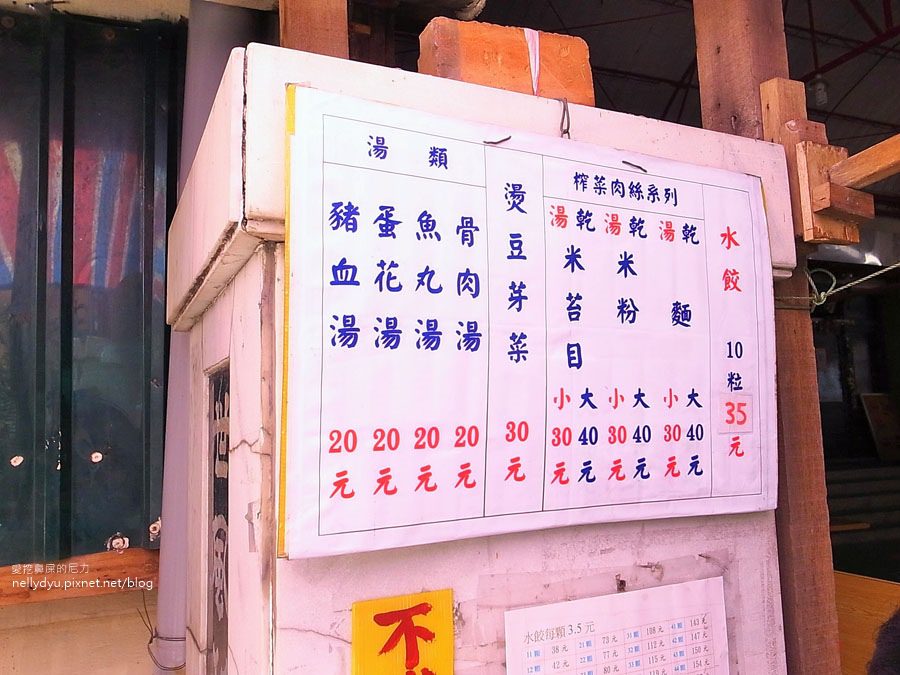 水餃 10粒 35元
榨菜肉絲系列
湯 乾 麵 小 大 30元 40元
湯 乾 米粉 小 大 30元 40元
湯 乾 米苔目 小 大 30元 40元
燙豆芽菜 30元
湯類
骨肉湯 20元
魚丸湯 20元
蛋花湯 20元
豬血湯 20元
不
水餃每顆3.5元
愛挖鼻屎的尼力
nellydyu.pixnet.net/blog